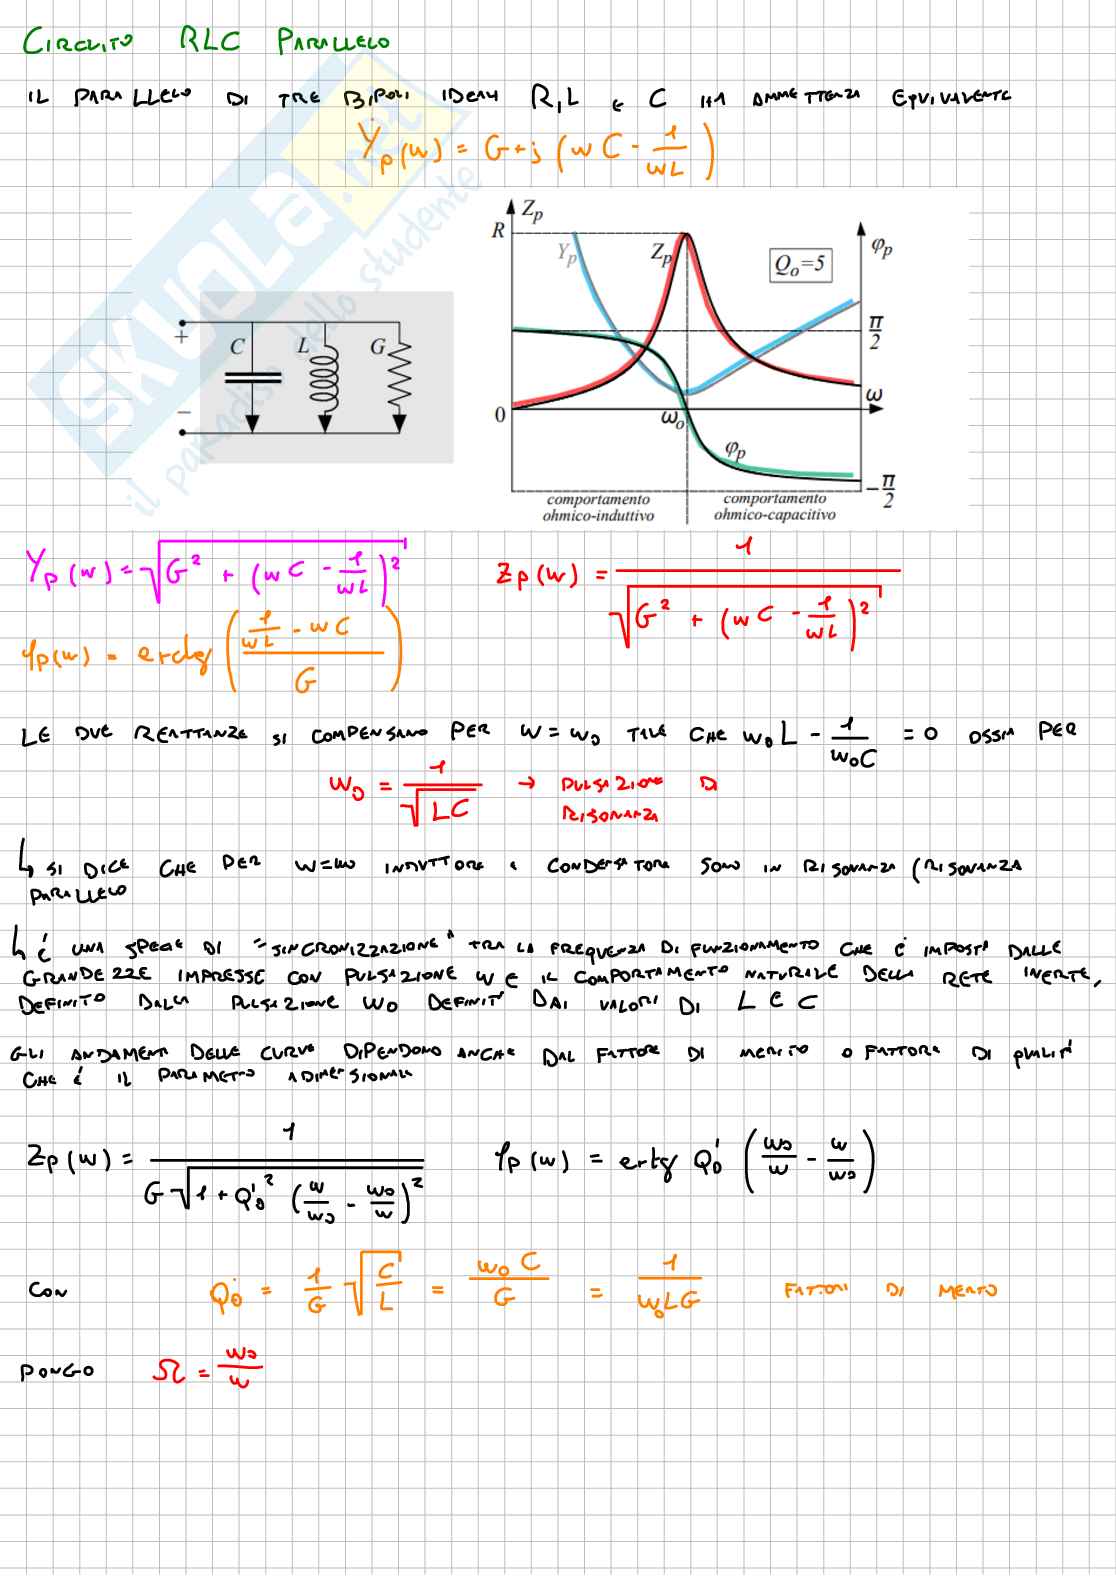 CIRCUITO RLC PARALLELO
IL PARALLELO DI TRE BIPOLI IDEALI R, L E C HA AMMETTENZA EQUIVALENTE
Ẏp(ω) = G + j (ωC - 1/ωL)
SKUOLA.net
il paradiso dello studente
+
-
C
L
G
Zp
R
Yp
Zp
Qo=5
φp
π/2
ω
0
ωo
φp
-π/2
comportamento ohmico-induttivo
comportamento ohmico-capacitivo
Yp(ω) = √(G² + (ωC - 1/ωL)²)
Zp(ω) = 1/√(G² + (ωC - 1/ωL)²)
φp(ω) = arctg ((1/ωL - ωC)/G)
LE DUE REATTANZE SI COMPENSANO PER ω = ω0 TALE CHE ω0L - 1/ω0C = 0 OSSIA PER
ω0 = 1/√LC → PULSAZIONE DI
RISONANZA
↳ SI DICE CHE PER ω=ω0 INDUTTORE E CONDENSATORE SONO IN RISONANZA (RISONANZA
PARALLELO
↳ È UNA SPECIE DI "SINCRONIZZAZIONE" TRA LA FREQUENZA DI FUNZIONAMENTO CHE È IMPOSTA DALLE
GRANDEZZE IMPRESSE CON PULSAZIONE ω E IL COMPORTAMENTO NATURALE DELLA RETE INERTE,
DEFINITO DALLA PULSAZIONE ω0 DEFINITA DAI VALORI DI L E C
GLI ANDAMENTI DELLE CURVE DIPENDONO ANCHE DAL FATTORE DI MERITO O FATTORE DI QUALITÀ
CHE È IL PARAMETRO ADIMENSIONALE
Zp(ω) = 1/(G√(1 + Q0'² (ω/ω0 - ω0/ω)²)) φp(ω) = arctg Q0' (ω0/ω - ω/ω0)
CON Q0' = 1/G √(C/L) = ω0C/G = 1/ω0LG FATTORI DI MERITO
PONGO Ω = ω0/ω